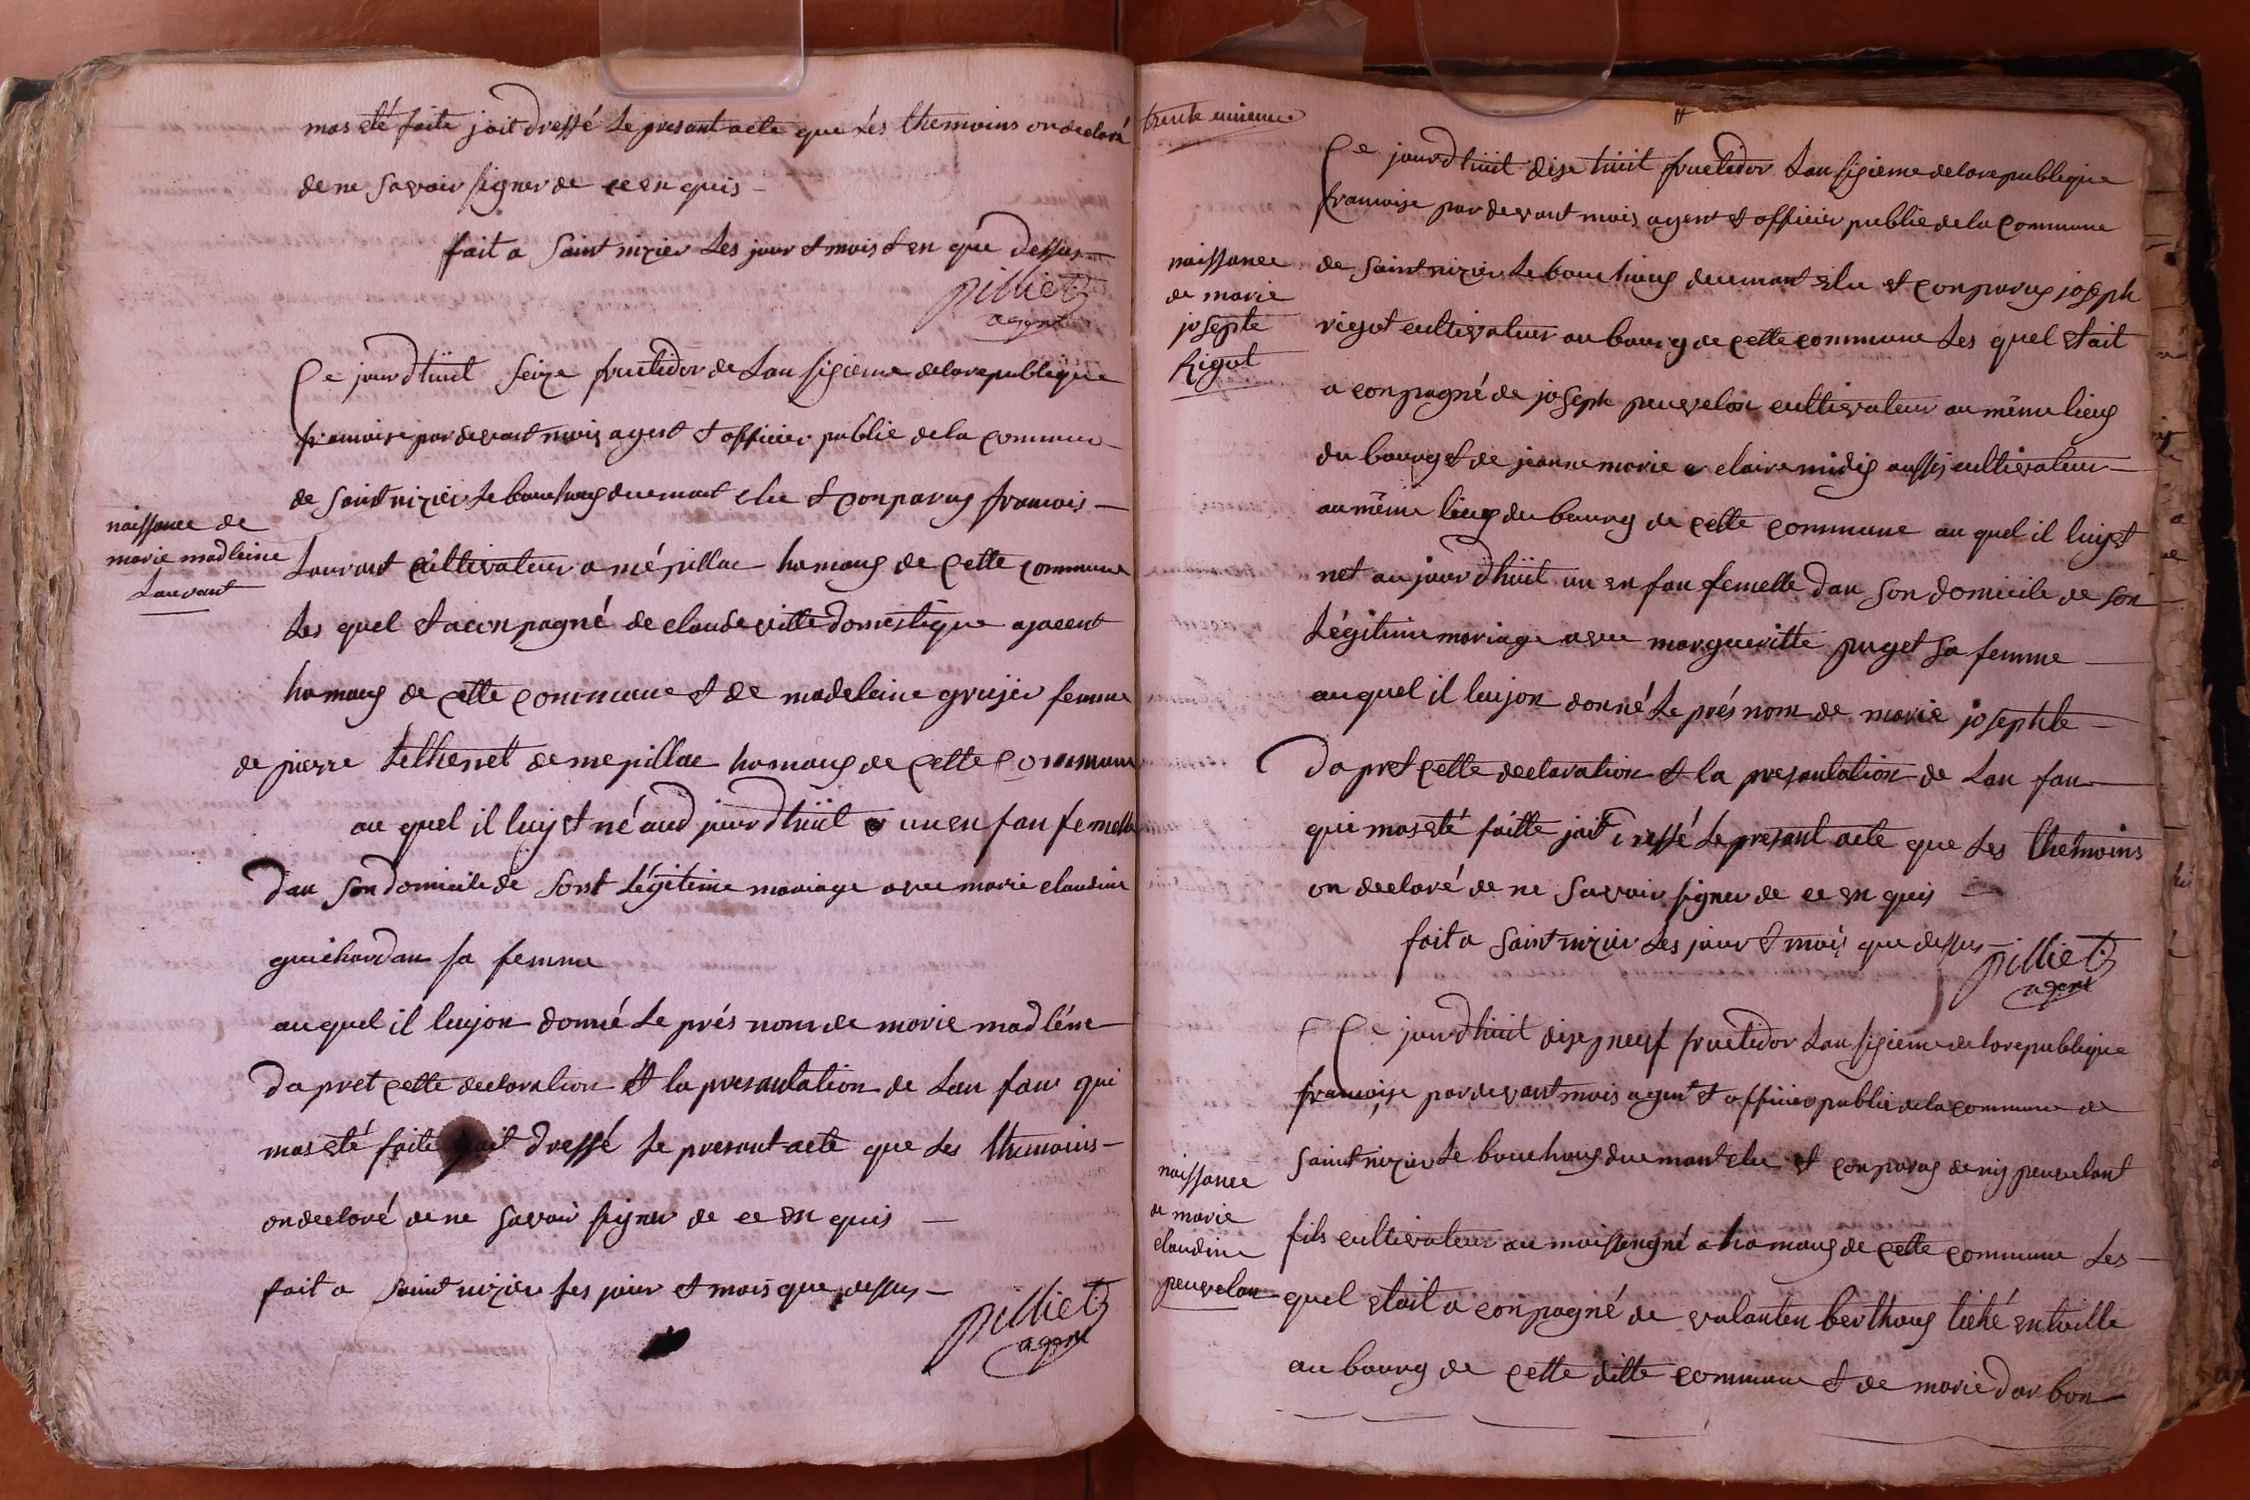 mas eté faite jait dressé Le presant acte que Les themoins on declaré
de ne savoir signer de ce en quis
fait a saint nizier Les jour et mois et en que dessus
pilliet
agent
Ce jourdhüit seize fructidor de Lan sizieme de la republique
francoise par devant mois agent et officier public de la commune
de saint nizier Le bouchoug duemant elu et conparus francois
naissance de
marie madleine
Lauvant
Lauvant cultivateur a mépillac hamaug de cette commune
Les quel et aconpagné de claude ville domestique
hamaug de cette commune et de madeleine grujier femme
de pierre tethenet de mepillac hamaug de cette commune
au quel il luy et né aud jourdhüit un en fan femelle
dan son domicile de sont Légitime mariage avec marie claudine
guichardan sa femme
auquel il luy on donné Le prés nom de marie madléne
dapret cette declaration et la presantation de Lan fan qui
mas eté faite jait dressé Le presant acte que Les themoins
on declaré de ne savoir signer de ce en quis
fait a saint nizier Les jour et mois que dessus
pilliet
agent
trente uniemme
Ce jourdhüit dize hüit fructidor Lan sizieme de la republique
francoise par devant mois agent et officier public de la commune
naissance
de marie
josepte
Rigot
de saint nizier Le bouchoug duemant elu et conparus joseph
rigot cultivateur au bourg de cette commune Les quel etait
a conpagné de joseph peuvelon cultivateur au même lieug
du bourg et de jeanne marie claire midig aussis cultivateur
au même lieug du bourg de cette commune au quel il luy et
net aujourdhüit un en fan femelle dan son domicile de son
Légitime mariage avec margueritte puget sa femme
auquel il luy on donné Le prés nom de marie josephte
dapret cette declaration et la presantation de Lan fan
qui mas eté faitte jait dressé Le presant acte que Les themoins
on declaré de ne savoir signer de ce en quis
fait a saint nizier Les jour et mois que dessus
pilliet
agent
Ce jourdhüit dizeneuf fructidor Lan sizieme de la republique
francoise par devant mois agent et officier public de la commune de
saint nizier Le bouchoug duemant elu et conparus denis peuvelant
naissance
de marie
claudine
peuvelan
fils cultivateur au hamaug de cette commune Les
quel etait a conpagné de valantin berthoug en taille
au bourg de cette ditte commune et de marie darbon